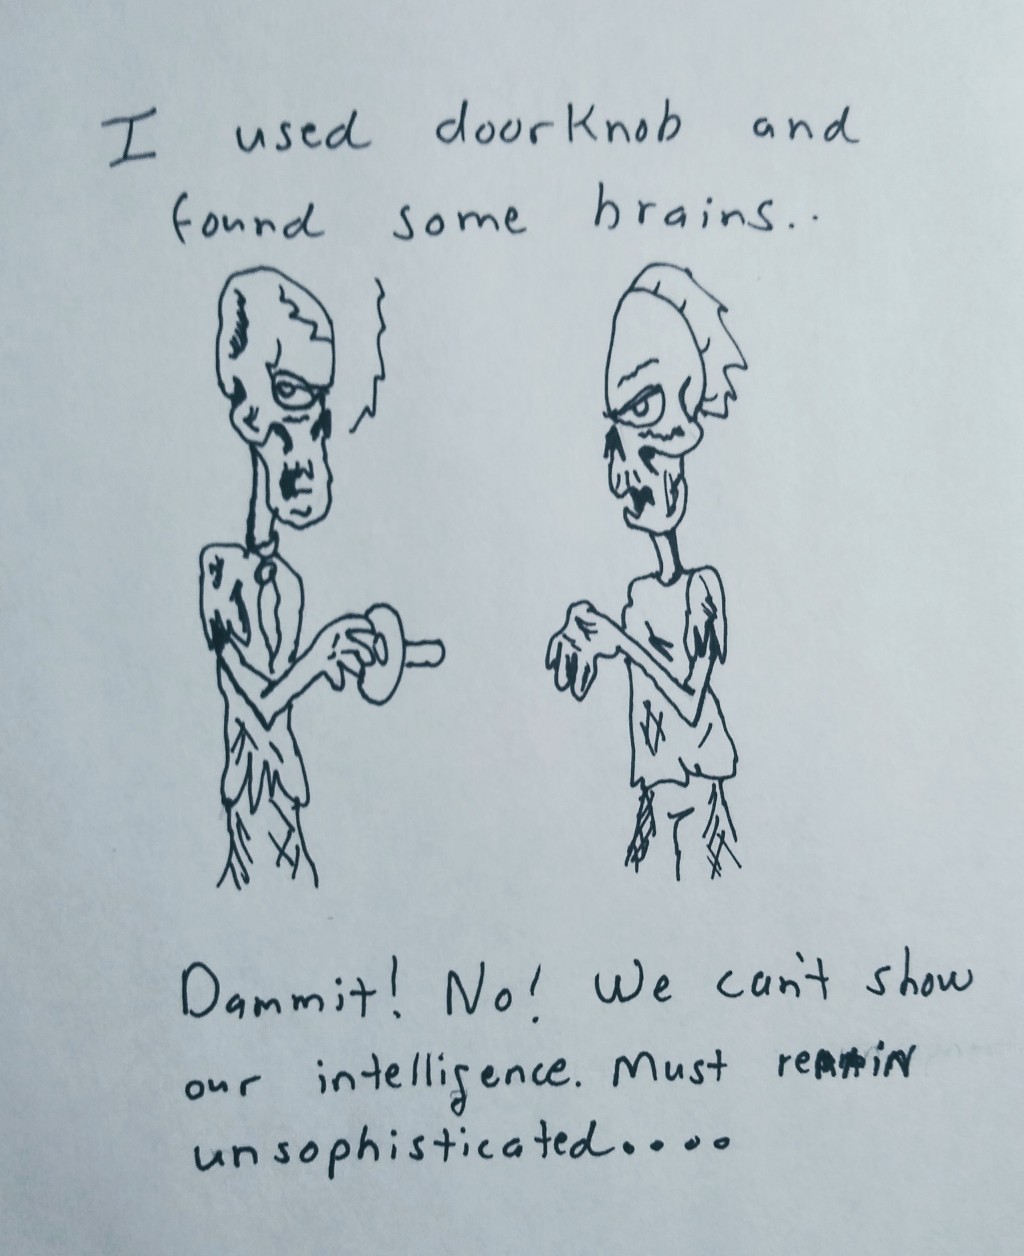 I used doorknob and
found some brains..
Dammit! No! We can't show
our intelligence. Must remain
unsophisticated....